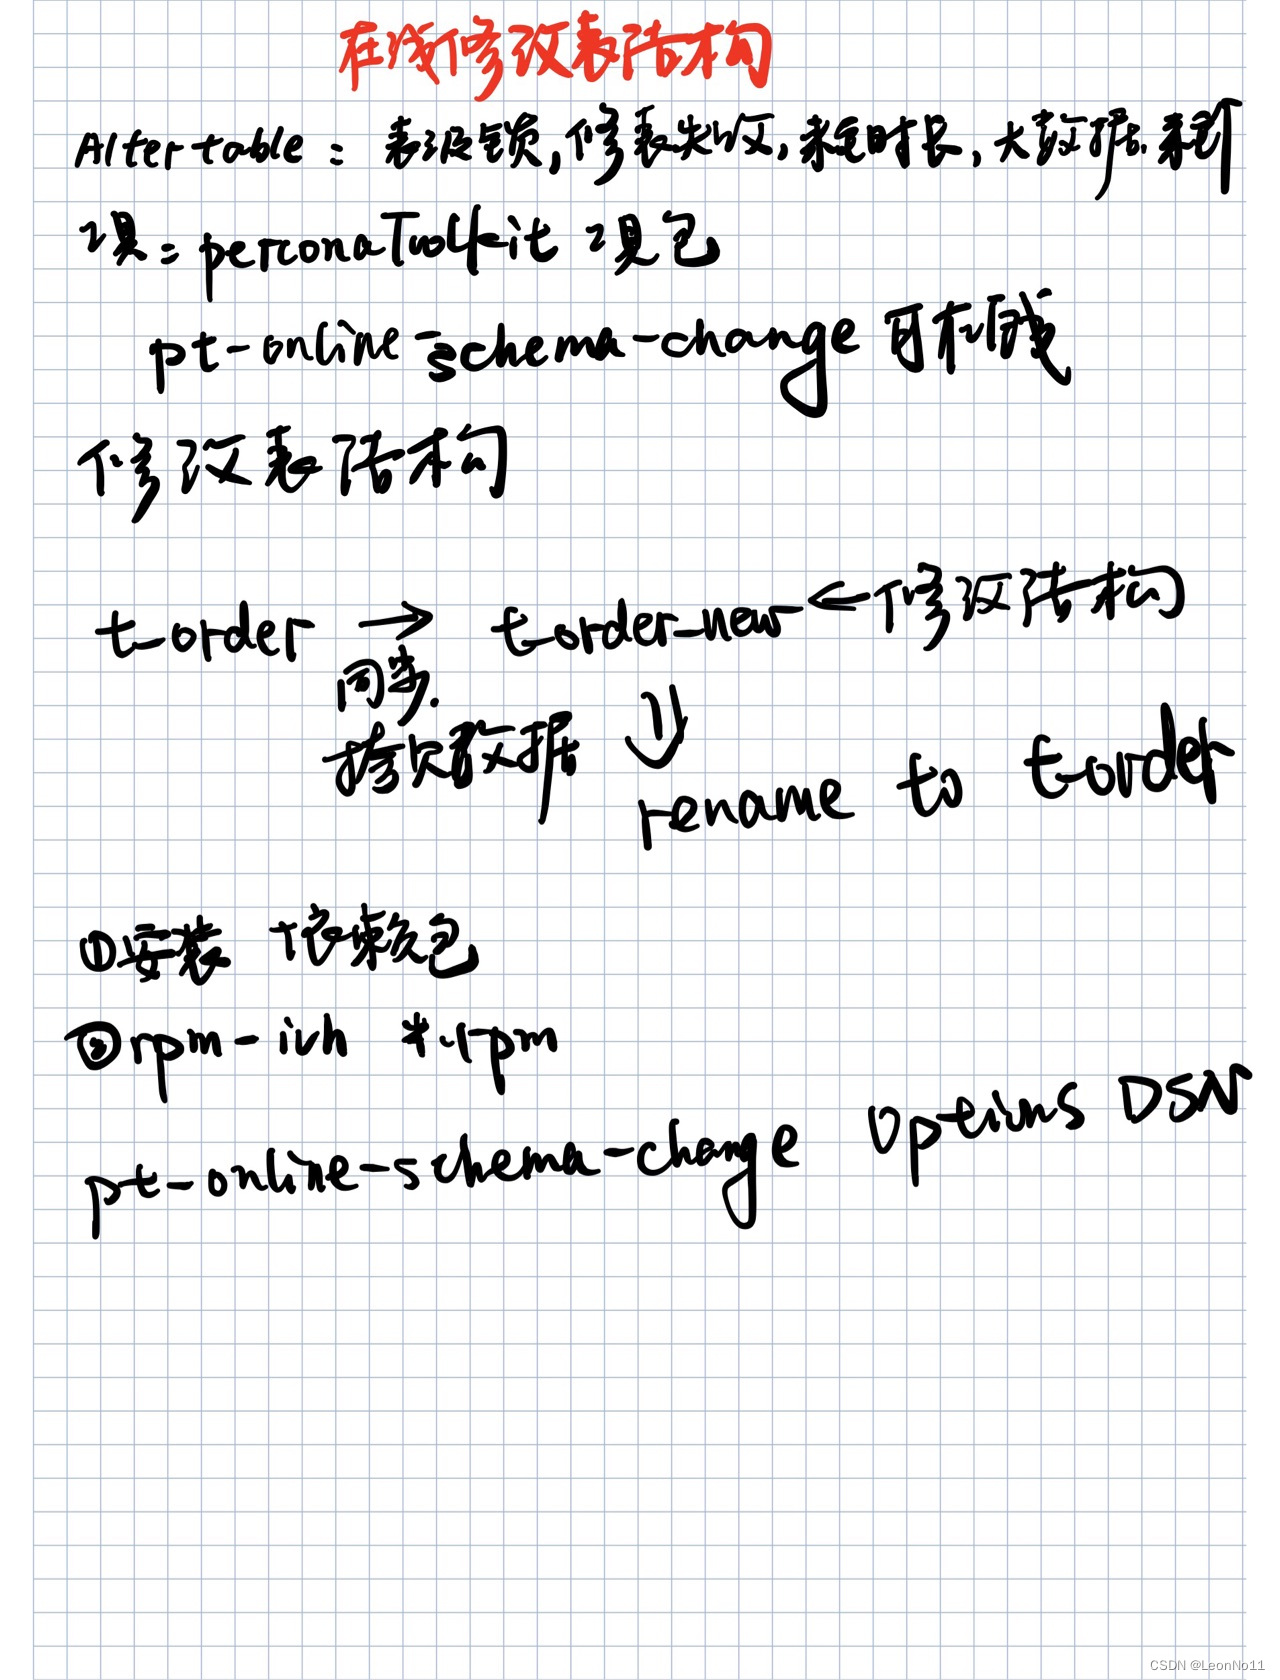 在线修改表结构
Alter table: 表级锁,修表失败,时长,大数据
工具: perconaToolkit 工具包
pt-online-schema-change 可在线
修改表结构
t_order → t_order_new ← 修改结构
同步.
拷贝数据
rename to t_order
①安装 依赖包
② rpm -ivh *.rpm
pt-online-schema-change Options DSN
CSDN @LeonNo11